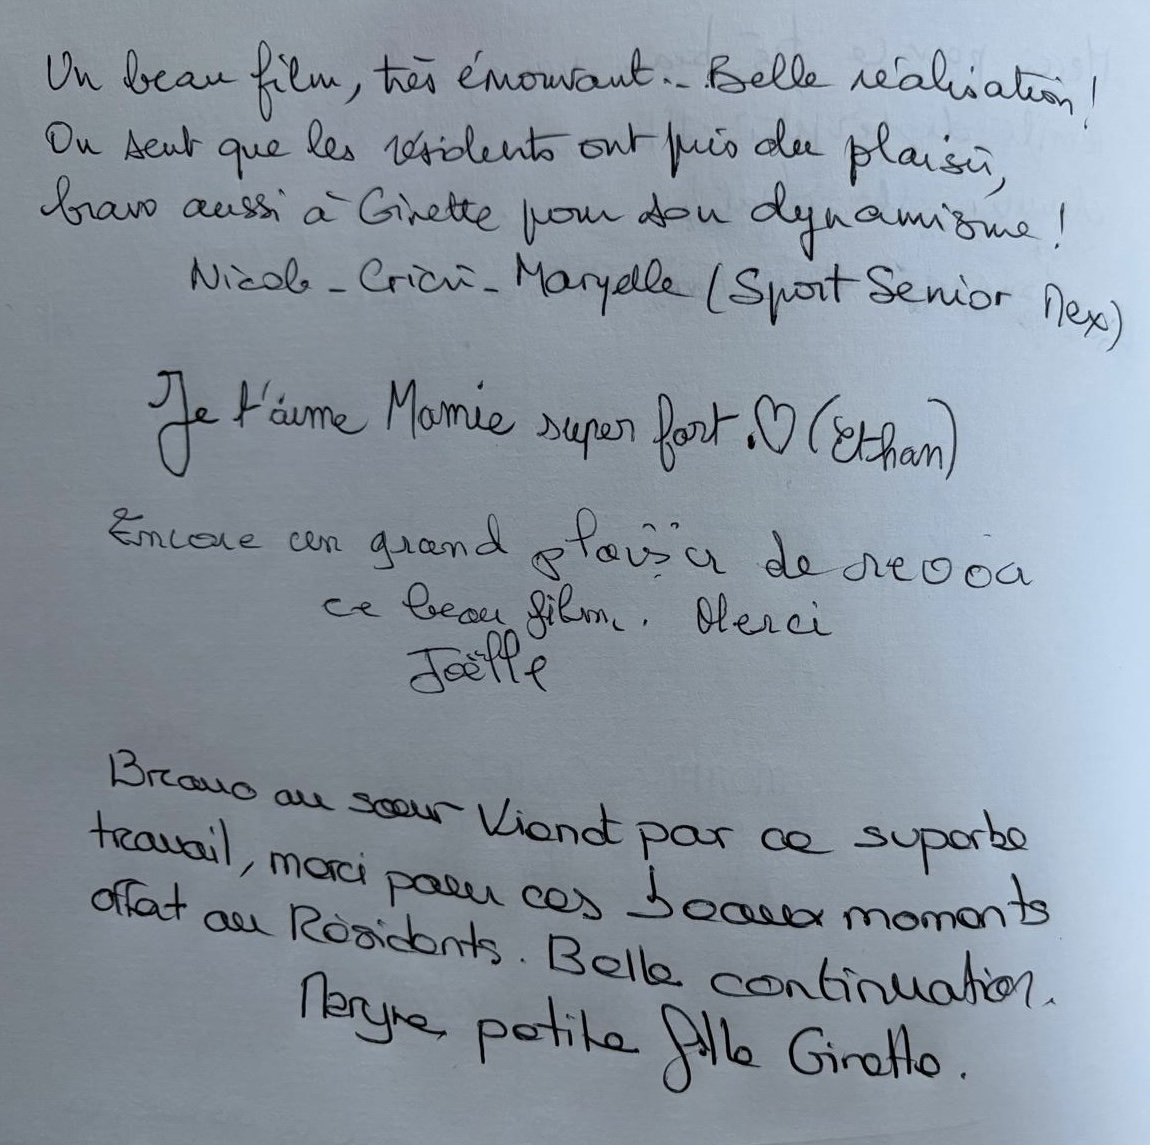 Un beau film, très émouvant.. Belle réalisation !
On sent que les résidents ont pris du plaisir,
bravo aussi à Ginette pour son dynamisme !
Nicole - Cricri - Maryelle (Sport Senior Mex)
Je t'aime Mamie super fort. ♡ (Ethan)
Encore un grand plaisir de revoir
ce beau film. Merci
Joëlle
Bravo au sœur Viand par ce superbe
travail, merci pour ces beaux moments
offert au Résidents. Belle continuation.
petite fille Ginette.